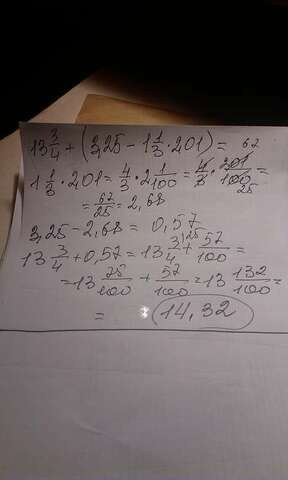 13 3/4 + (3,25 - 1 1/3 · 2,01) =
1 1/3 · 2,01 = 4/3 · 2 1/100 = 4/3 · 201/100 = 67 25
= 67/25 = 2,68
3,25 - 2,68 = 0,57
13 3/4 + 0,57 = 13 3/4 + 57/100 = 25
= 13 75/100 + 57/100 = 13 132/100 =
= 14,32